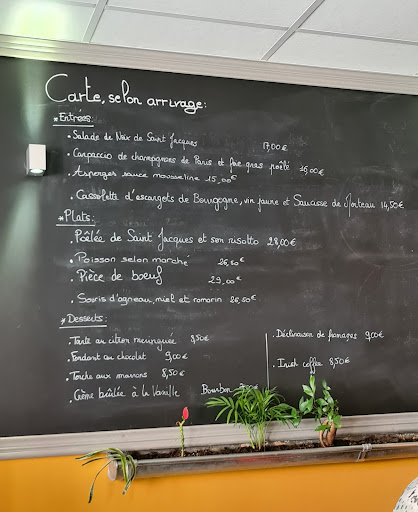 Carte, selon arrivage:
* Entrées:
• Salade de Noix de Saint Jacques 17,00€
• Carpaccio de champignons de Paris et foie gras poêlé 16,00€
• Asperges sauce mousseline 15,00€
• Cassolette d'escargots de Bourgogne, vin jaune et Saucisse de Morteau 14,50€
* Plats:
• Poêlée de Saint Jacques et son risotto 28,00€
• Poisson selon marché 26,50€
• Pièce de boeuf 29,00€
• Souris d'agneau, miel et romarin 26,50€
* Desserts:
• Tarte au citron meringuée 9,50€
• Fondant au chocolat 9,00€
• Torche aux marrons 8,50€
• Crème brûlée à la Vanille Bourbon
• Déclinaison de fromages 9,00€
• Irish coffee 8,50€